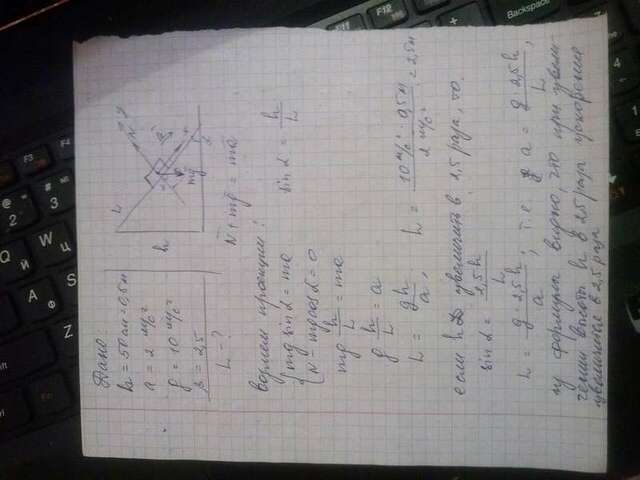 Дано:
h = 50 см = 0,5 м
a = 2 м/с²
g = 10 м/с²
= 2,5
L - ?
h
L
N
y
mg
N + mg = ma
возьмем проекции:
mg sin α = ma
N - mg cos α = 0
sin α = h/L
mg h/L = ma
g h/L = a
L = gh/a, L = 10 м/с² · 0,5 м / 2 м/с² = 2,5 м
если h увеличить в 2,5 раза, то
sin α = 2,5 h / L
L = g · 2,5 h / a, т.е. a = g · 2,5 h / L,
из формулы видно, что при увели-
чении высоты h в 2,5 раза ускорение
увеличится в 2,5 раза
F3
F4
F11
F12
Backspace